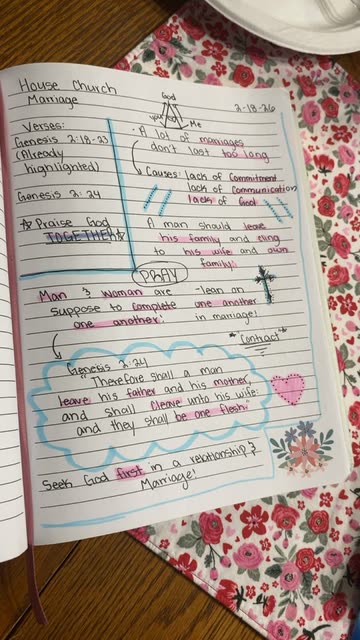 House Church
Marriage
2-18-26
God
you
Me
Verses:
Genesis 2:18-23
(Already
highlighted)
Genesis 2:24
Praise God
TOGETHER
· A lot of marriages
don't last too long
Causes: lack of Commitment
lack of Communication
lack of God
A man should leave
his family and cling
to his wife and own
family!
PRAY
Man & woman are
suppose to complete one another
one another!
-lean on
in marriage!
*Contract*
Genesis 2:24
"Therefore shall a man
leave his father and his mother,
and shall cleave unto his wife:
and they shall be one flesh."
Seek God first in a relationship &
Marriage!